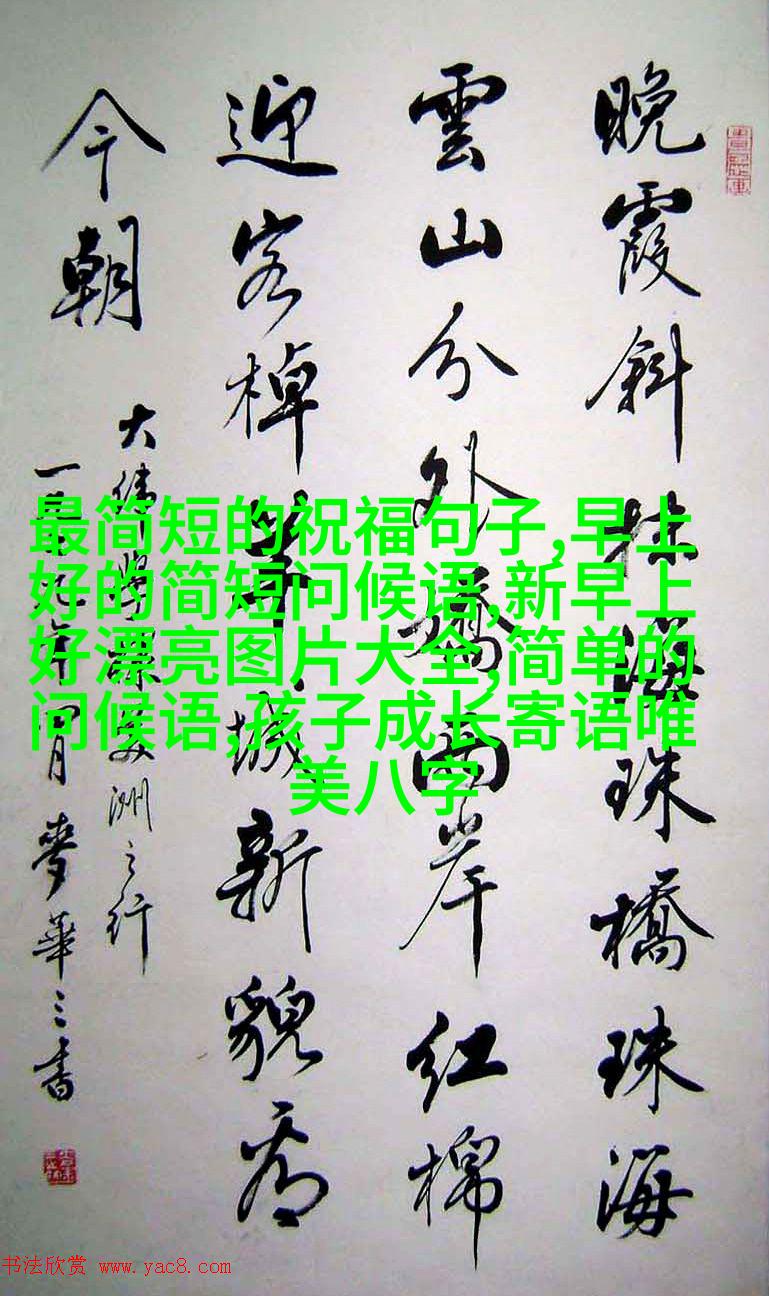 晚霞斜抹海珠橋珠海
雲山分外嬌兩岸红棉
迎客棹羊城新貌看
今朝
洲之行
年四月麥華三書
最简短的祝福句子,早上
好的简短问候语,新早上
好漂亮图片大全,简单的
问候语,孩子成长寄语唯
美八字
书法欣赏 www.yac8.com